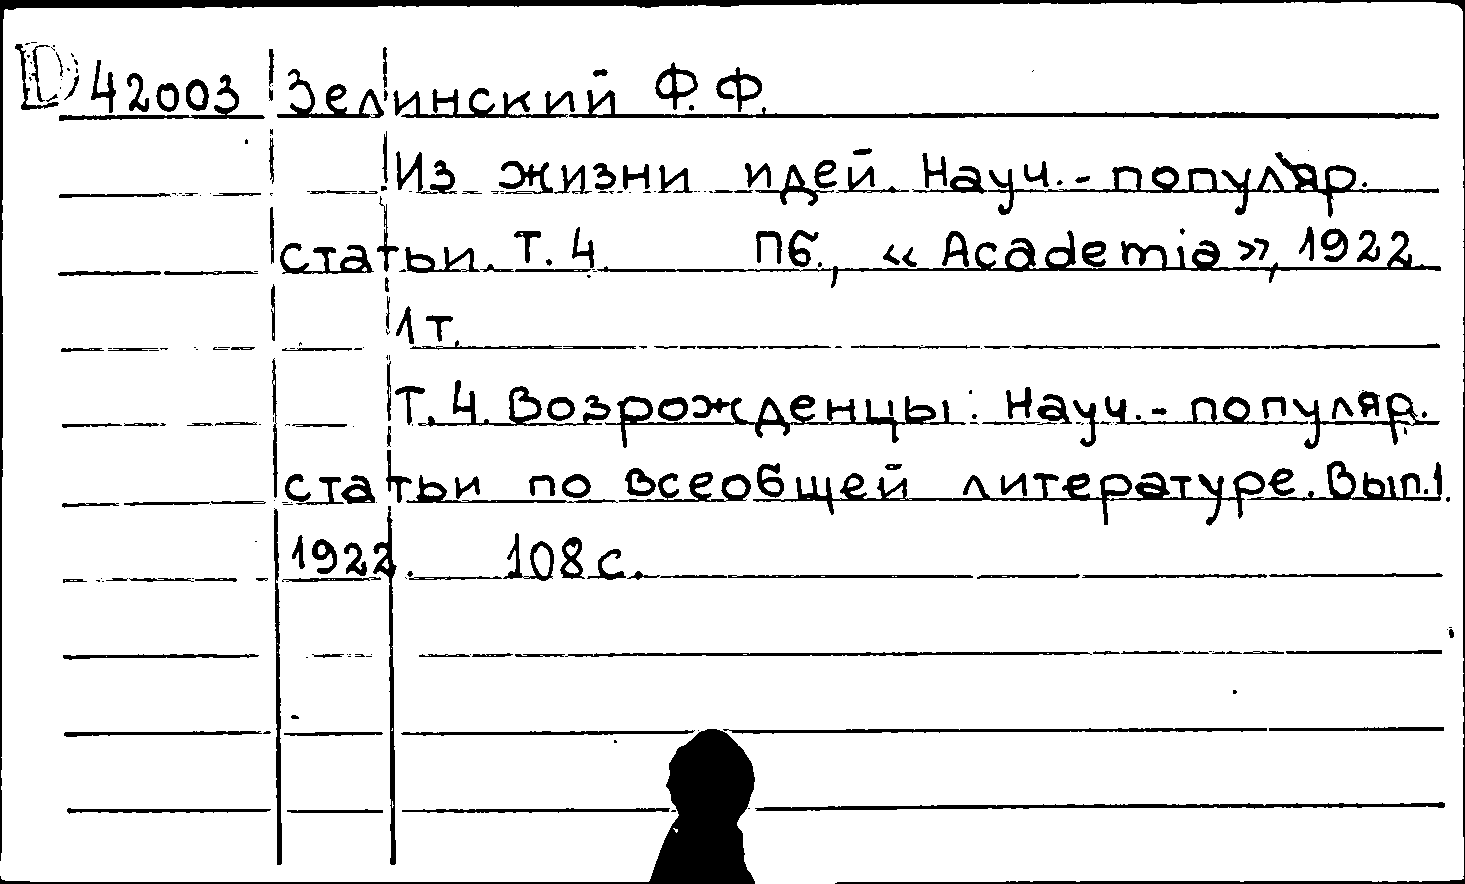 D 42003 Зелинский Ф.Ф.
Из жизни идей. Науч.-популяр.
статьи. Т. 4. Пб., «Academia», 1922.
1 т.
Т. 4. Возрожденцы: Науч.-популяр.
статьи по всеобщей литературе. Вып.1.
1922. 108 с.